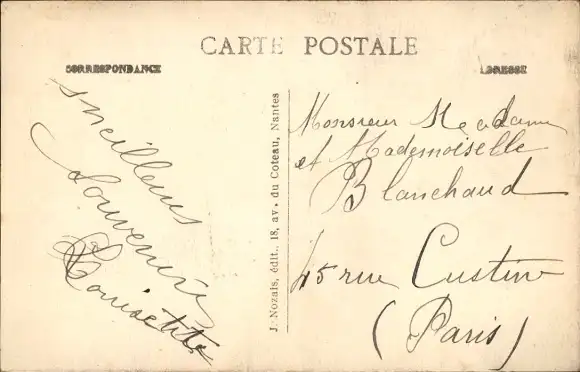 CARTE POSTALE
CORRESPONDANCE
ADRESSE
Meilleurs
Souvenirs
J. Nozais, édit., 18, av. du Coteau, Nantes
Monsieur Madame
et Mademoiselle
Blanchaud
45 rue Custine
(Paris)